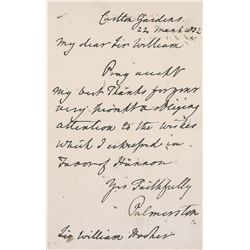 Carlton Gardens
22 March 1862
My dear Sir William
Pray accept
my best Thanks for your
very prompt & obliging
attention to the wishes
which I expressed in
Favor of
Yrs Faithfully
Palmerston
Sir William